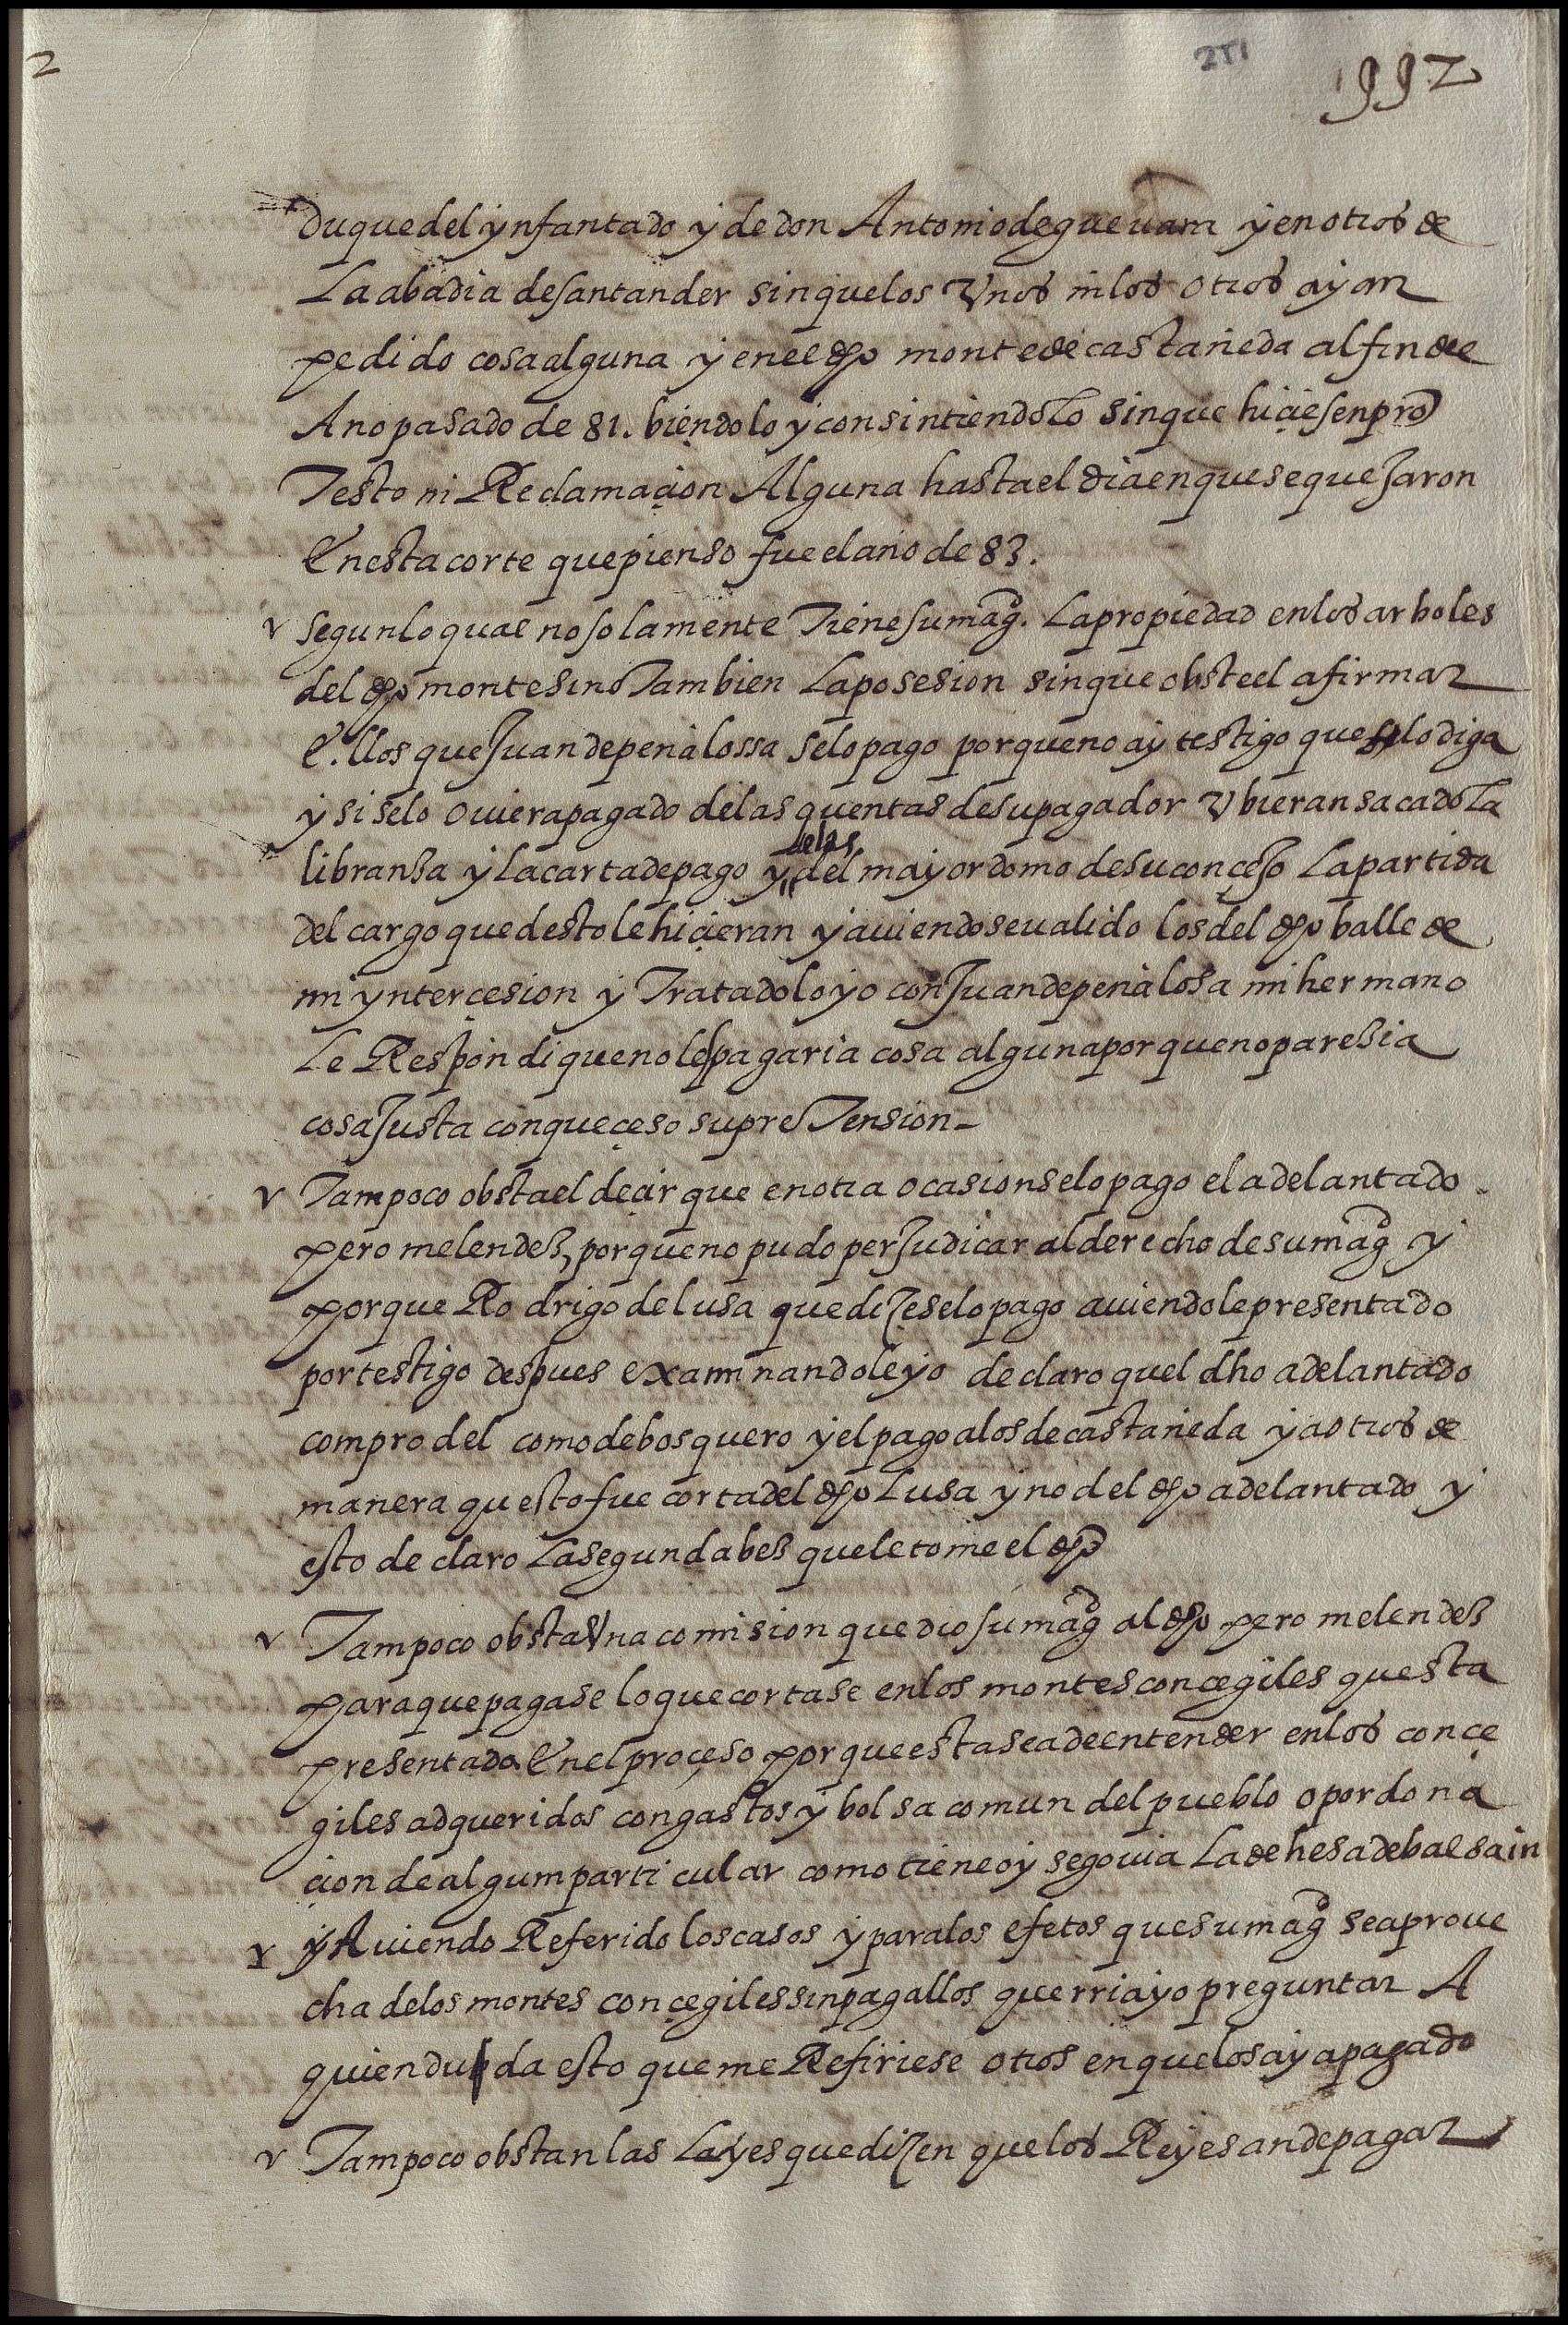 2
271
992
duque del ynfantado y de don Antonio de gueuara y en otros de
La abadia de santander sin que los Vnos ni los otros ayan
pedido cosa alguna y en el dho monte de castañeda al fin del
Año pasado de 81. biendolo y consintiendolo sin que hiçiesen pro
Testo ni Reclamaçion Alguna hasta el dia en que se quejaron
En esta corte que pienso fue el año de 83.
segun lo qual no solamente Tiene su magd. La propiedad en los arboles
del dho monte sino Tambien La posesion sin que obste el afirmar
Ellos que Juan de peñalossa se lo pago porque no ay testigo que lo diga
y si se lo ouiera pagado de las quentas de su pagador Vbieran sacado La
libranza y La carta de pago y de las del mayordomo de su conçejo La partida
del cargo que desto le hiçieran y auiendose ualido los del dho balle de
mi ynterçesion y Tratadolo yo con Juan de peñalosa mi hermano
Le Respondi que no les pagaria cosa alguna porque no parezia
cosa Justa con que çeso su preTension_
Tampoco obsta el deçir que en otra ocasion se lo pago el adelantado
pero melendez, porque no pudo perJudicar al derecho de su magd y
porque Rodrigo de lusa que dize se lo pago auiendole presentado
por testigo despues examinandole yo declaro quel dho adelantado
compro del como de bosquero y el pago a los de castañeda y a otros de
manera questo fue corta del dho Lusa y no del dho adelantado y
esto declaro La segunda bez que le tome el dho
Tampoco obsta Vna comision que dio su magd al dho pero melendez
para que pagase lo que cortase en los montes concegiles questa
presentada En el proçeso porque esta se a de entender en los conçe
giles adqueridos con gastos y bolsa comun del pueblo o por dona
çion de algum particular como tiene oy segouia La dehesa de balsain
y Auiendo Referido los casos y para los efetos que su magd se aproue
cha de los montes conçegiles sin pagallos querria yo preguntar A
quien duda esto que me Refiriese otros en que los aya pagado
Tampoco obstan las Leyes que dizen que los Reyes an de pagar